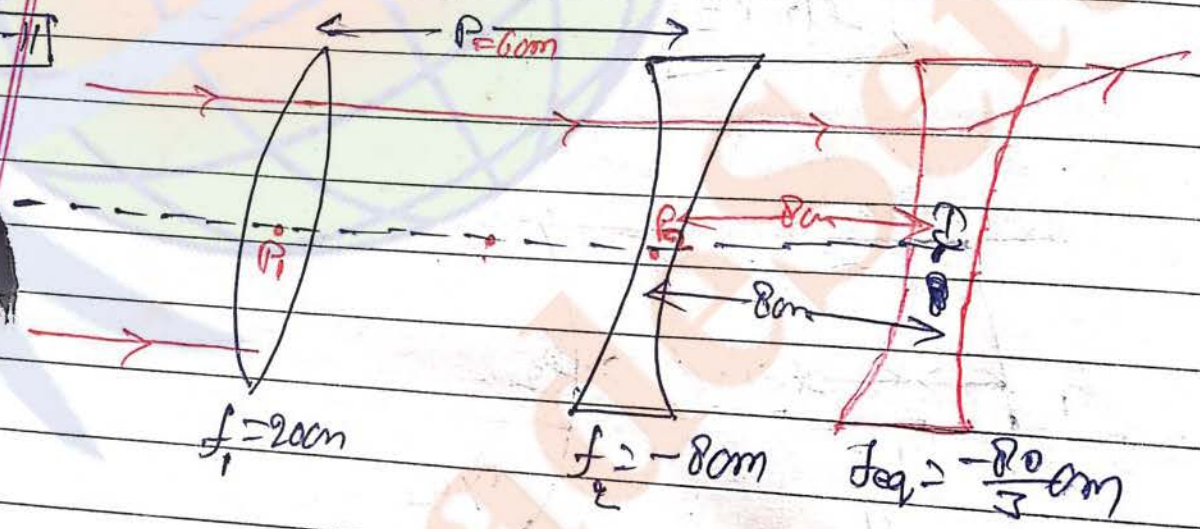 P=6cm
P₁
P₂
8cm
8cm
f₁=20cm
f₂=-8cm
feq=-80/3 cm